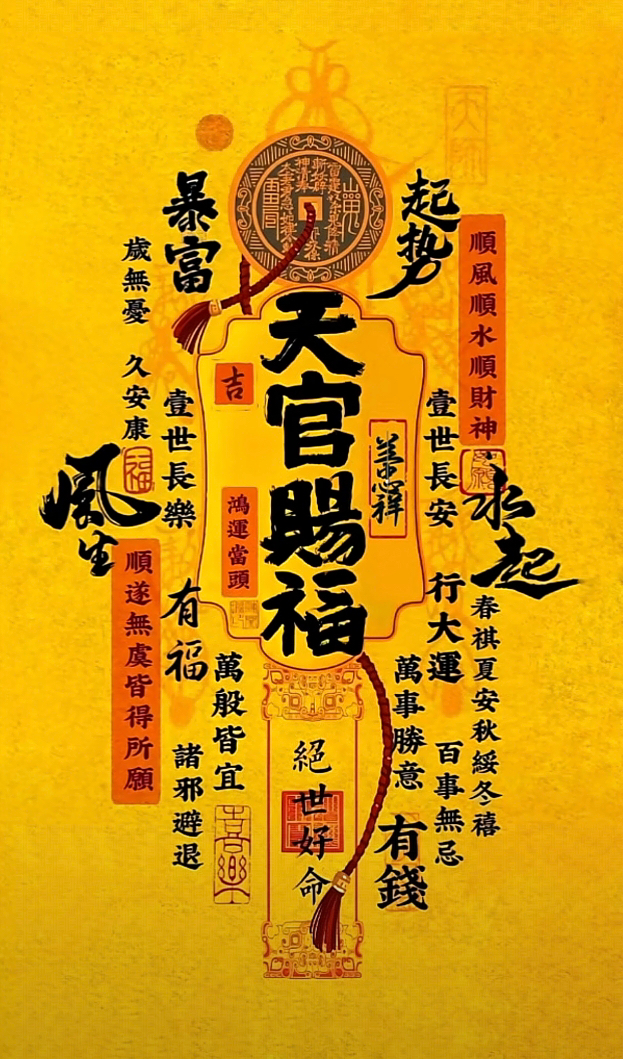 天官賜福
起势
順風順水順財神
暴富
歲無憂 久安康
吉
善慈祥
壹世長安
壹世長樂
風生
水起
鴻運當頭
順遂無虞皆得所願
有福
行大運
春祺夏安秋綏冬禧
萬般皆宜
萬事勝意
百事無忌
諸邪避退
絕世好命
有錢
福